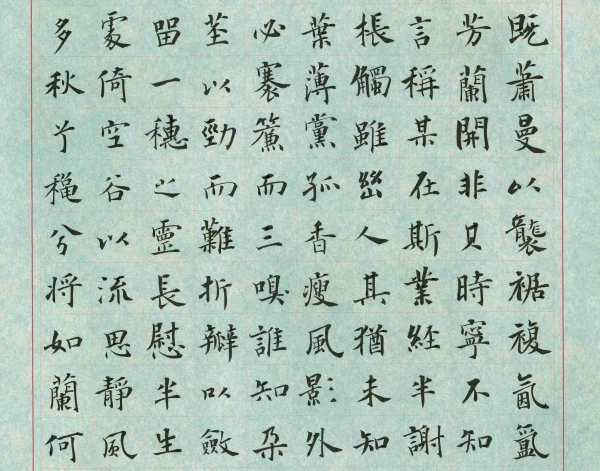 既蕭曼以襲裾複氤氳
芳蘭開非只時寧不知
言稱某在斯業經半謝
棖觸雖幽人其猶未知
葉薄黨孤香瘦風影外
必褰簾而三嗅誰知朶
莖以勁而難折瓣以斂
留一穗之靈長慰半生
處倚空谷以流思靜風
多秋兮龝兮將如蘭何